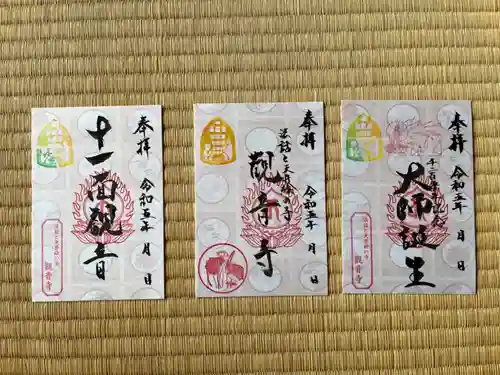 奉拝
十一面観音
令和五年 月 日
観音寺
奉拝
法話と天井絵の寺
観音寺
令和五年 月 日
奉拝
大師誕生
令和五年 月 日
観音寺